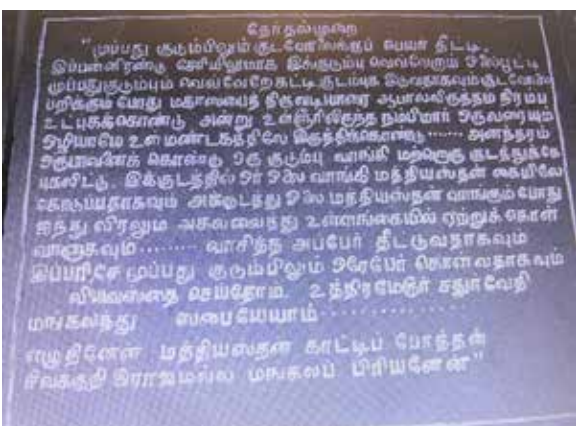 தேர்தல்முறை
"முப்பது குடும்பிலும் குடவோலைக்குப் பேயர் தீட்டி,
இப்பன்னிரண்டு சேரியிலுமாக இக்குடும்பு வெவ்வேறாய் ஓலைபூட்டி
முப்பதுகுடும்பும் வெவ்வேறேகட்டி குடம்புக இடுவதாகவும் குடவோலை
பறிக்கும் போது மகாஸபைத் திருவடியாரை ஆபாலவிருத்தம் நிரம்ப
உட்புகக்கொண்டு அன்று உள்ளூரிலிருந்த நம்பிமார் ஒருவரையும்
ஒழியாமே உள் மண்டகத்திலே இருத்திக்கொண்டு ...... அனந்தரம்
ஒரு குடும்பு வாங்கி மற்றொரு குடத்துக்கே
புகவிட்டு, இக்குடத்தில் ஓர் ஓலை வாங்கி மத்தியஸ்தன் கையிலே
கொடுப்பதாகவும் அக்குடத்து ஓலை மத்தியஸ்தன் வாங்கும் போது
ஐந்து விரலும் அகலவைத்து உள்ளங்கையில் ஏற்றுக் கொள்
வானாகவும் ......... வாசித்த அப்பேர் தீட்டுவதாகவும்
இப்பரிசே முப்பது குடும்பிலும் ஒரேபேர் கொள்வதாகவும்
வியவஸ்தை செய்தோம். உத்திரமேரூர் சதுர்வேதி
மங்கலத்து ஸபையோம் ................
எழுதினேன் மத்தியஸ்தன் காட்டிப் போத்தன்
சிவக்குறி இராஜமல்ல மங்கலப் பிரியனேன்"